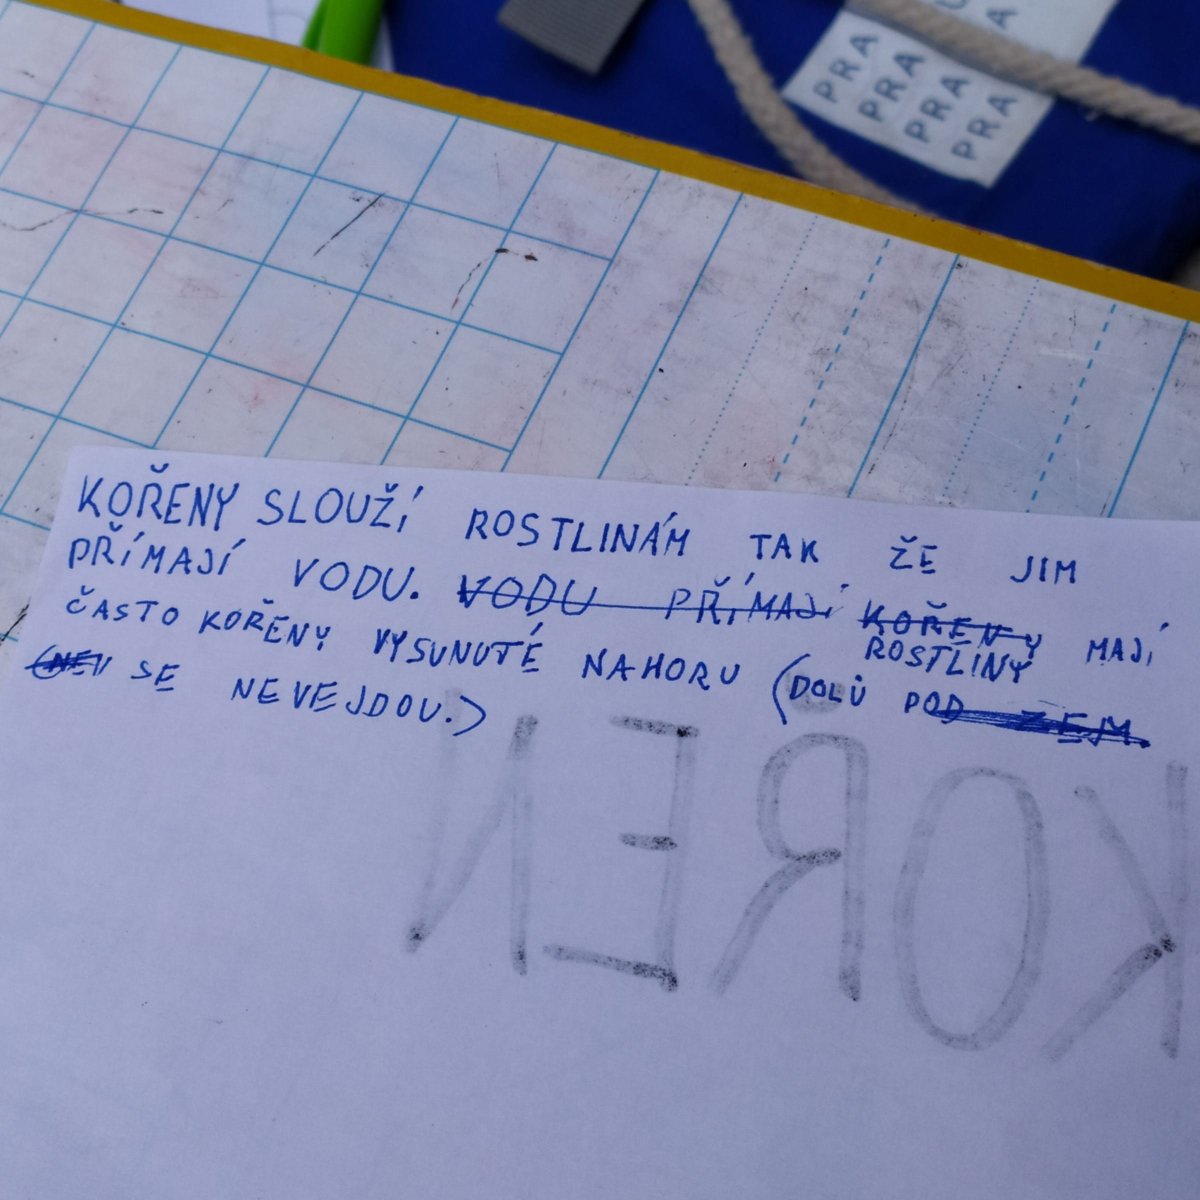 PRA PRA
PRA PRA
KOŘENY SLOUŽÍ ROSTLINÁM TAK ŽE JIM
PŘÍMAJÍ VODU. VODU PŘÍMAJÍ KOŘENY ROSTLINY MAJÍ
ČASTO KOŘENY VYSUNUTÉ NAHORU (DOLŮ POD ZEM.
SE NEVEJDOU.)
KOŘEN